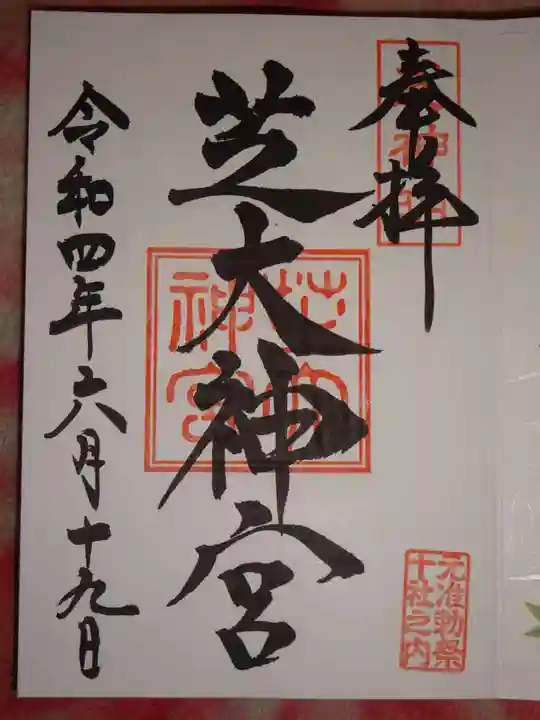 奉拝
芝大神宮
芝大
神宮
元准勅祭
十社之内
令和四年六月十九日